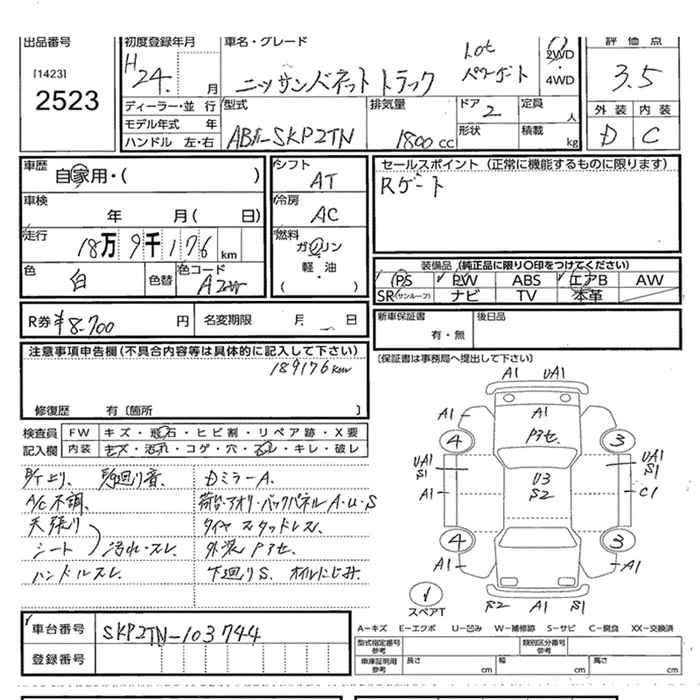 出品番号 初度登録年月 車名・グレード 2WD ・4WD 評価点
[1423] 2523
H24. 月 ニッサンバネットトラック Lot パワーゲート 3.5
ディーラー・並行 型式 排気量 ドア 2 定員 人 外装 内装
モデル年式 年 ABF-SKP2TN 1800cc 形状 積載 kg D C
ハンドル 左・右
車歴 自家用・( ) シフト AT セールスポイント (正常に機能するものに限ります)
車検 年 月( 日) 冷房 AC Rゲート
走行 18万9千176km 燃料 ガソリン 軽油 ( )
色 白 色替 色コード 装備品 (純正品に限り○印をつけてください)
PS PW ABS エアB AW
SR(サンルーフ) ナビ TV 本革
R券 ¥8-700 円 名変期限 月 日 新車保証書 有・無 後日品
注意事項申告欄(不具合内容等は具体的に記入して下さい) [保証書は事務局へ提出して下さい]
189176km
修復歴 有〔箇所 〕
検査員 FW キズ・飛石・ヒビ割・リペア跡・X要
記入欄 内装 キズ・汚れ・コゲ・穴・スレ・キレ・破レ
所上り、 足廻り音、 DミラーA.
A/C不調、 荷台・アオリ・バックパネルA・U・S
天張り タイヤスタッドレス、
シート 汚れ・スレ、 外装Pヌセ、
ハンドルスレ 下廻りS、オイルにじみ、
A1 UA1
A1 A1 A1
4 Pヌセ 3
UA1 S1 U3 S2 UA1 S1
A1 C1
4 3
A1 A1
S2 A1 S1
スペアT
車台番号 SKP2TN-103744
登録番号
A-キズ E-エクボ U-凹み W-補修跡 S-サビ C-腐食 XX-交換済
型式指定番号 参考 類別区分番号 参考
車庫証明用 参考 長さ cm 幅 cm 高さ cm